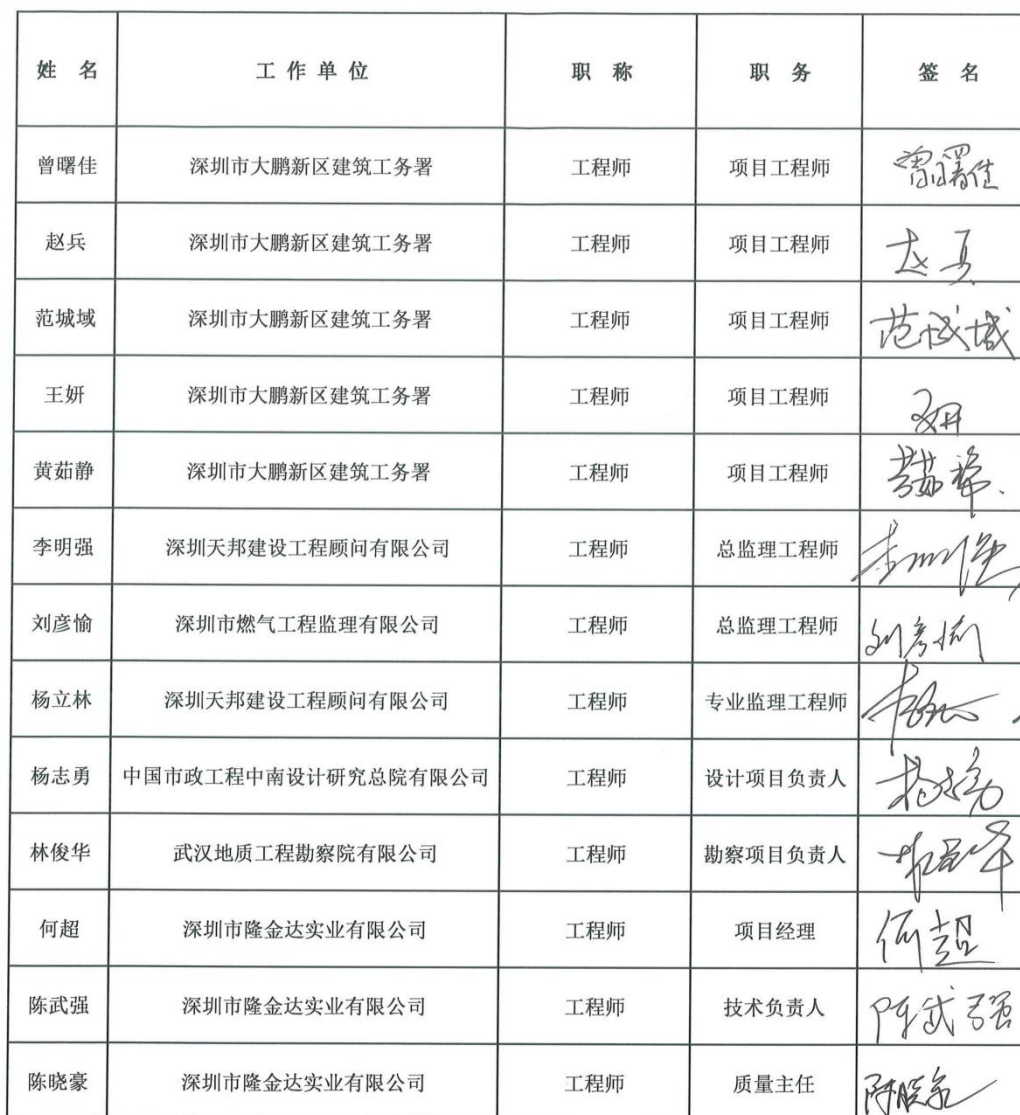 姓 名 工 作 单 位 职 称 职 务 签 名
曾曙佳 深圳市大鹏新区建筑工务署 工程师 项目工程师 曾曙佳
赵兵 深圳市大鹏新区建筑工务署 工程师 项目工程师 赵兵
范城域 深圳市大鹏新区建筑工务署 工程师 项目工程师 范城域
王妍 深圳市大鹏新区建筑工务署 工程师 项目工程师 王妍
黄茹静 深圳市大鹏新区建筑工务署 工程师 项目工程师 黄茹静
李明强 深圳天邦建设工程顾问有限公司 工程师 总监理工程师 李明强
刘彦愉 深圳市燃气工程监理有限公司 工程师 总监理工程师 刘彦愉
杨立林 深圳天邦建设工程顾问有限公司 工程师 专业监理工程师
杨志勇 中国市政工程中南设计研究总院有限公司 工程师 设计项目负责人 杨志勇
林俊华 武汉地质工程勘察院有限公司 工程师 勘察项目负责人 林俊华
何超 深圳市隆金达实业有限公司 工程师 项目经理 何超
陈武强 深圳市隆金达实业有限公司 工程师 技术负责人 陈武强
陈晓豪 深圳市隆金达实业有限公司 工程师 质量主任 陈晓豪